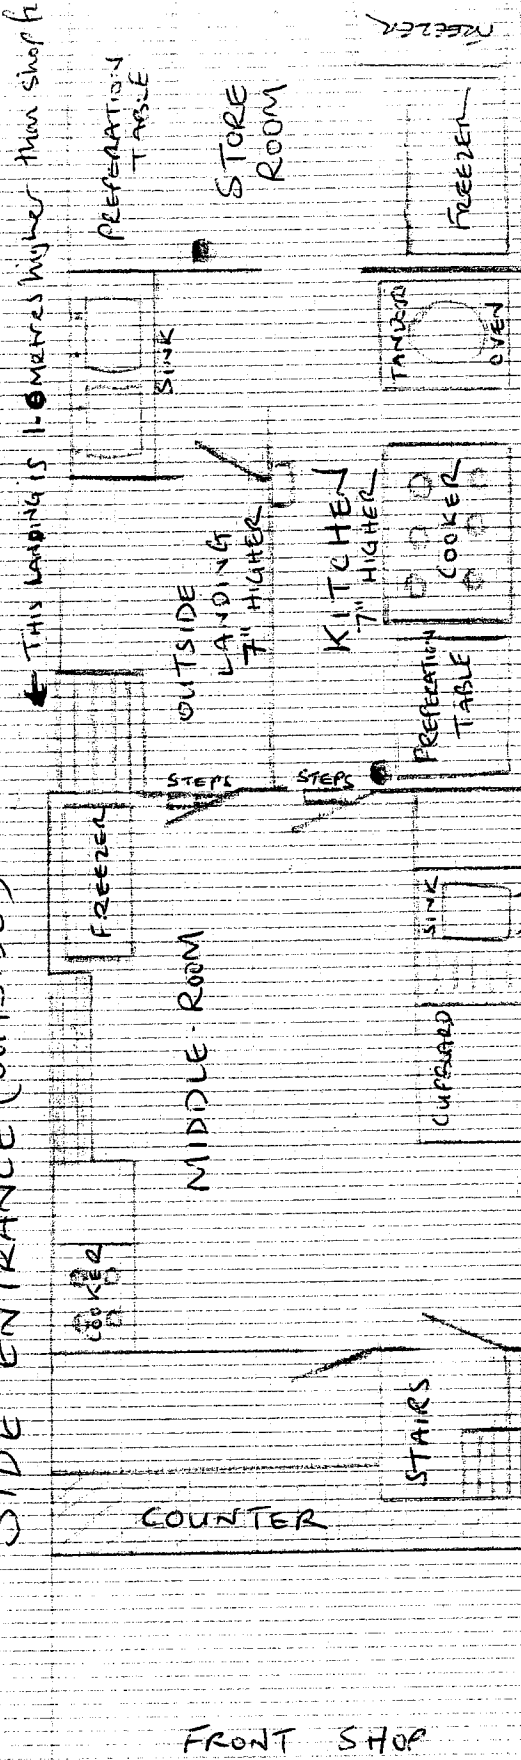 SIDE ENTRANCE (OUTSIDE)
← THIS LANDING IS 1.0 Metres higher than shop
PREPERATION
TABLE
STORE
ROOM
FREEZER
FREEZER
SINK
TANDOOR
OVEN
OUTSIDE
LANDING
7" HIGHER
KITCHEN
7" HIGHER
COOKER
PREPERATION
TABLE
STEPS
STEPS
FREEZER
MIDDLE-ROOM
SINK
CUPBOARD
COOKER
STAIRS
COUNTER
FRONT SHOP